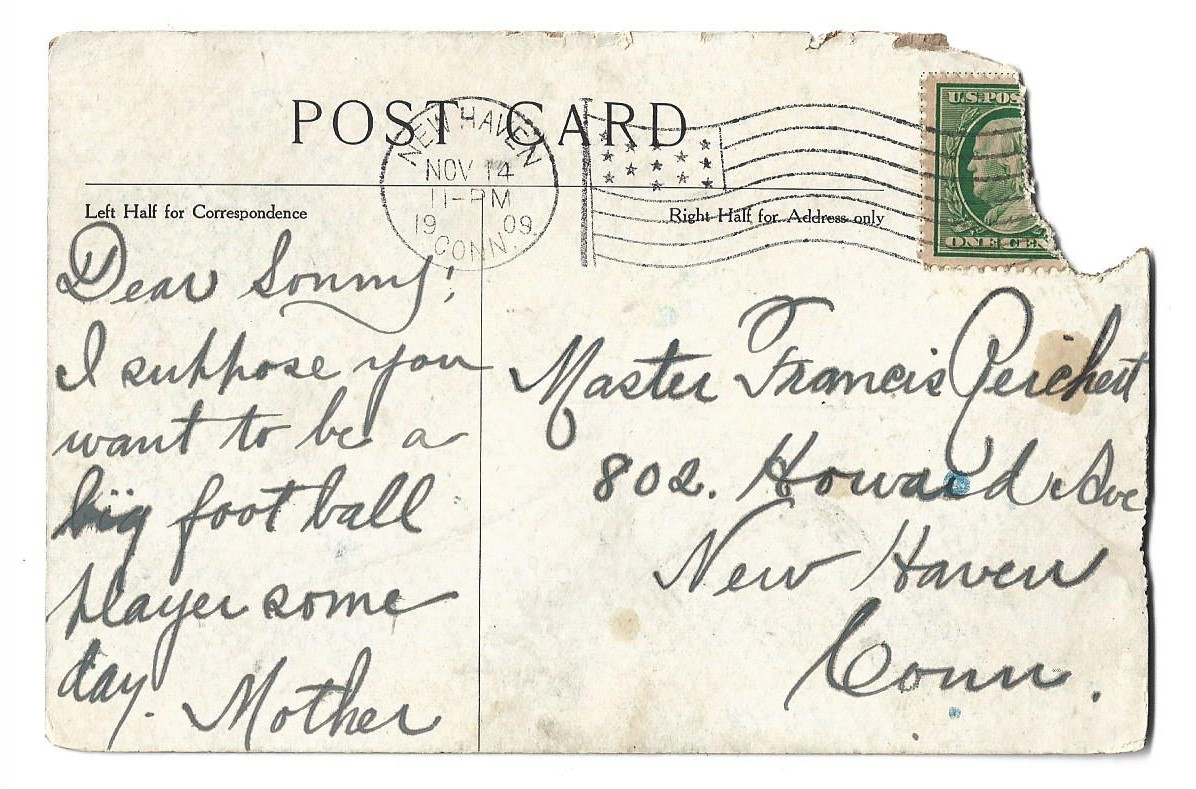 POST CARD
NEW HAVEN
NOV 14
11-PM
1909
CONN.
U.S. POS
ONE CEN
Left Half for Correspondence
Right Half for Address only
Dear Sonny!
I suppose you
want to be a
big foot ball
player some
day.
Mother
Master Francis Reichert
802. Howard Ave
New Haven
Conn.